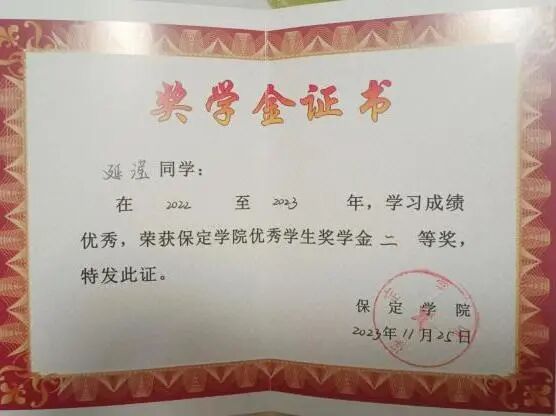 奖学金证书
延滢同学：
在 2022 至 2023 年，学习成绩
优秀，荣获保定学院优秀学生奖学金 二 等奖，
特发此证。
保定学院
2023年11月25日